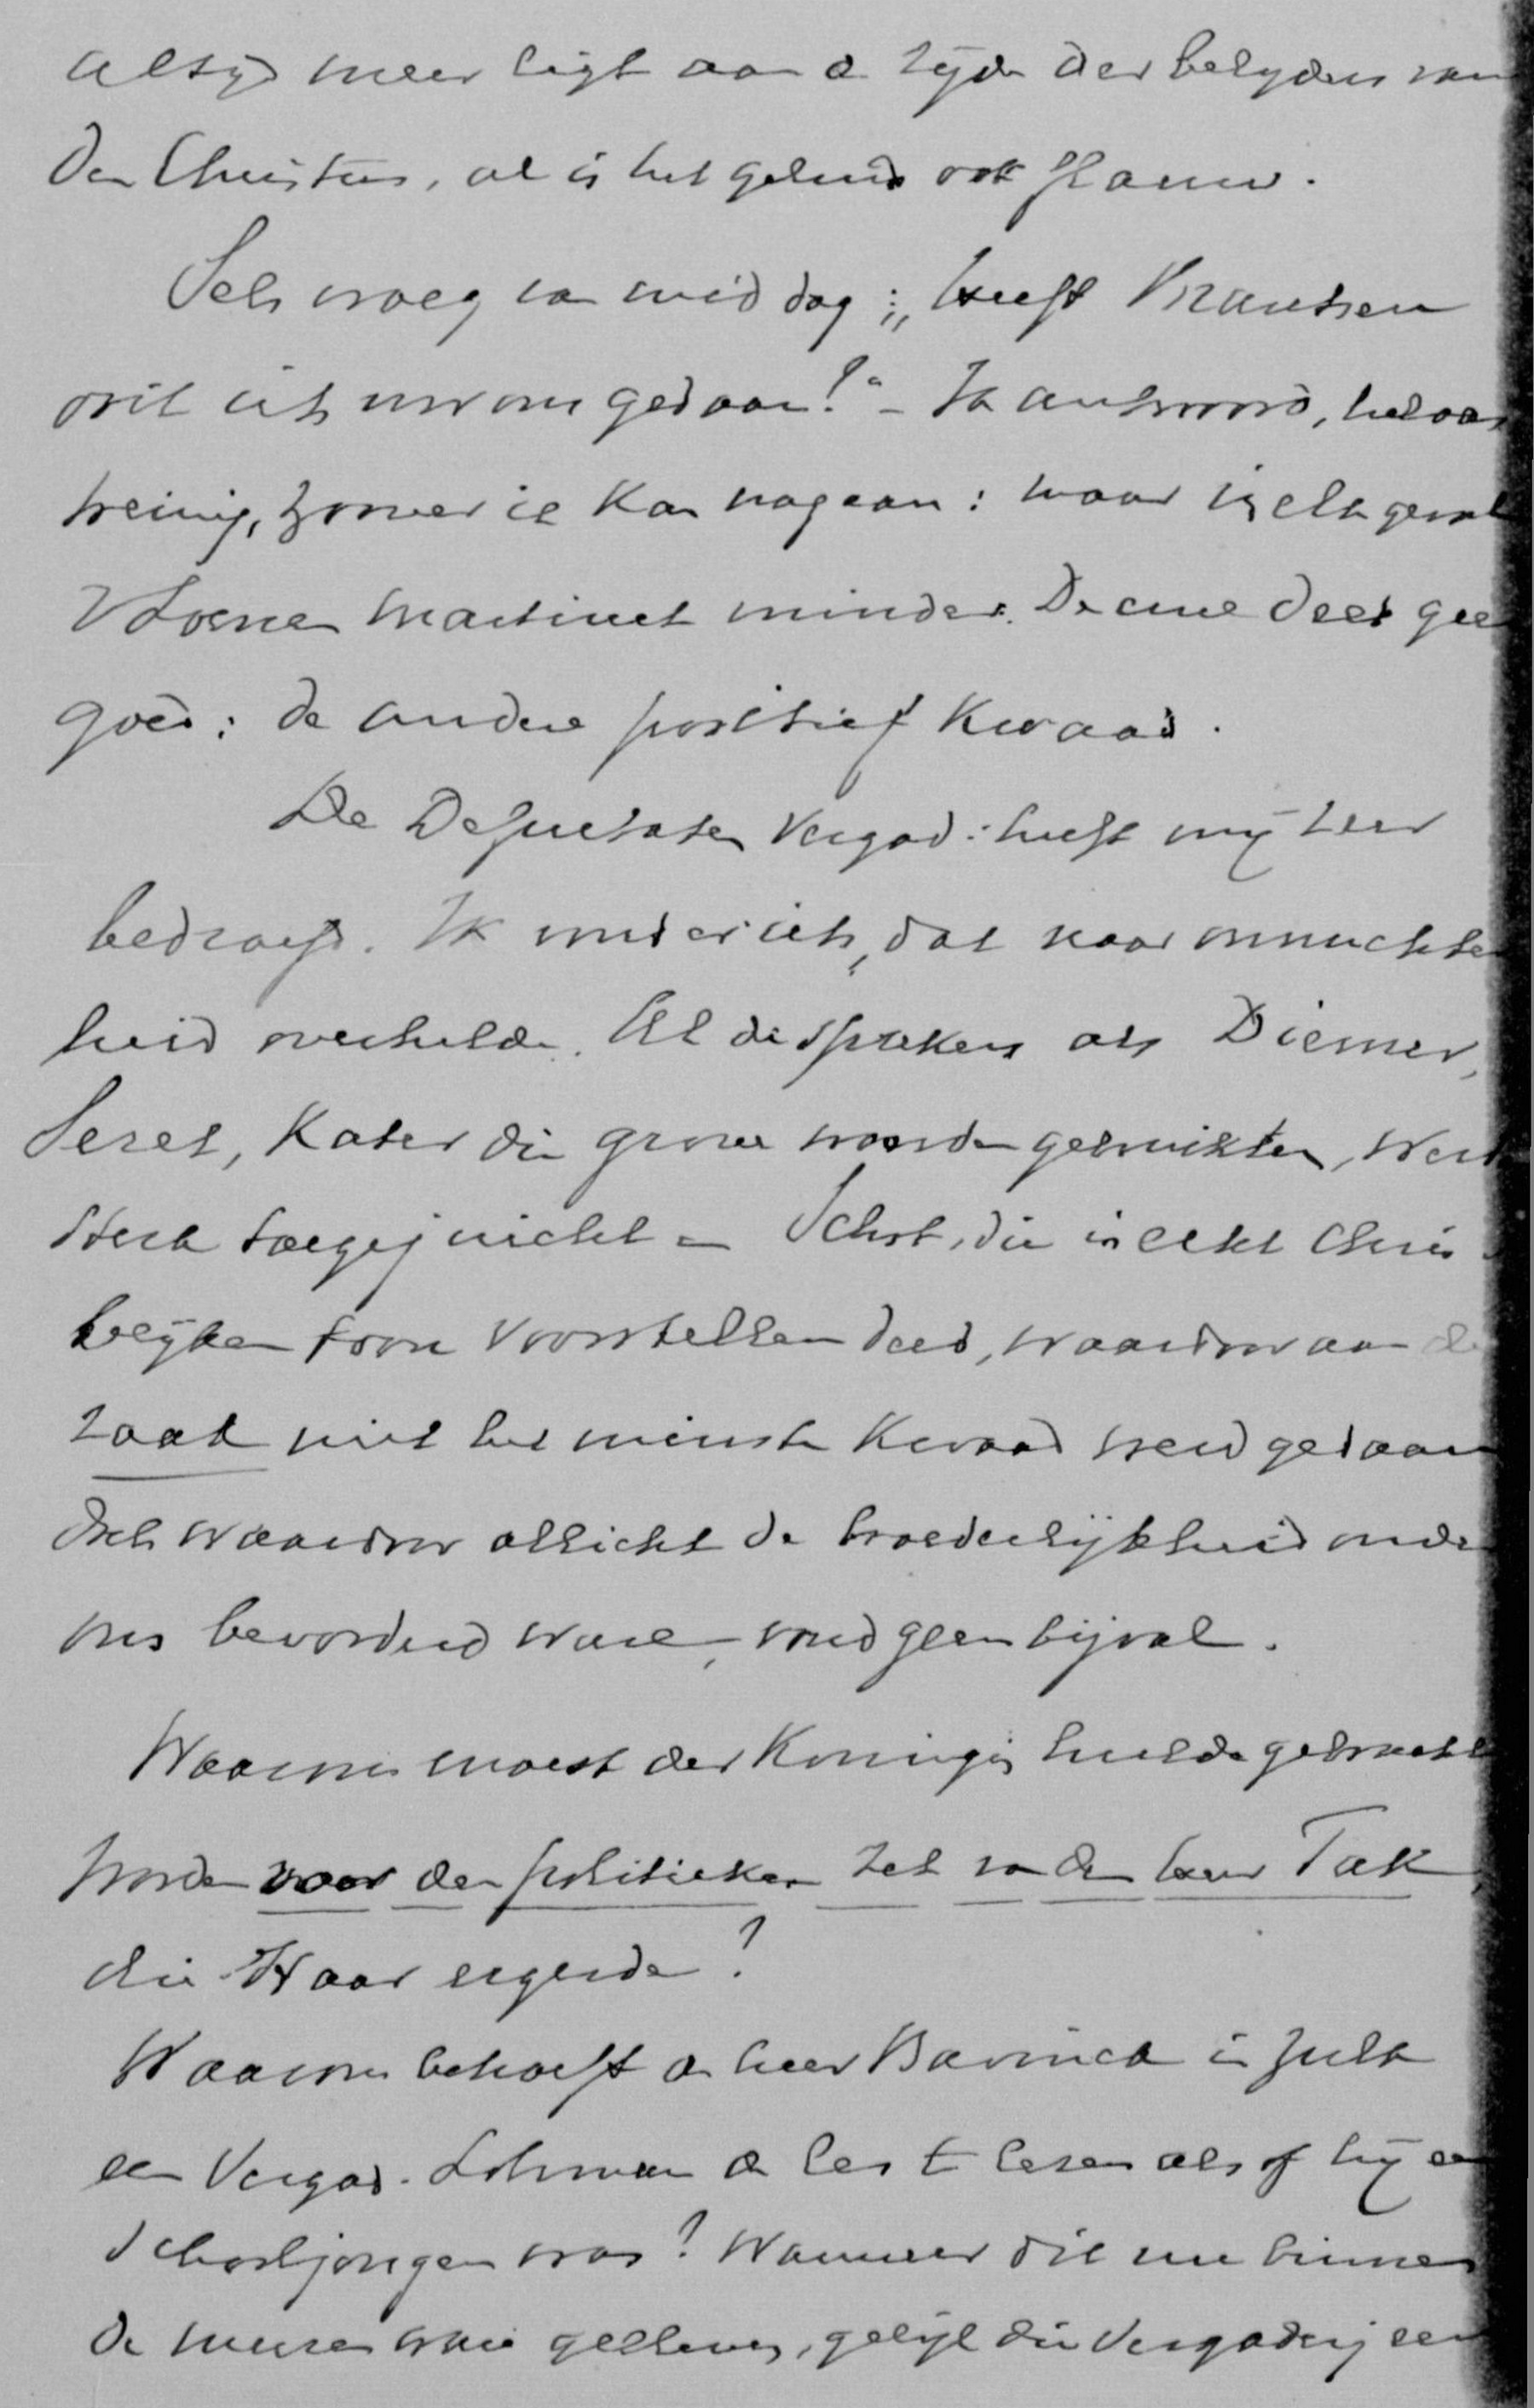 altijd meer ligt aan de zijde der belijders van
den Christus, al is het geluid ook flauw.
Sch vroeg van middag: „heeft Brantsen
ooit iets voor ons gedaan?" – Ik antwoord, helaas
weinig, zoover ik kan nagaan: maar in elk geval
V Loenen Martinet minder. De eene deed geen
goed: de andere positief kwaad.
De Deputaten Vergad: heeft mij zeer
bedroefd. Ik vond er iets, dat naar onnuchter
heid overhelde. Al de sprekers als Diemer,
Seret, Kater die grove woorden gebruikten, werden
sterk toegejuicht – Schot, die in echt Chris
telijken toon voorstellen deed, waardoor aan de
zaak niet het minste kwaad werd gedaan
doch waardoor allicht de broederlijkheid onder
ons bevorderd ware, vond geen bijval.
Waarom moest der Koningin hulde gebracht
worden voor den politieken zet van den heer Tak,
die Haar ergerde?
Waarom behoeft de heer Bavinck in zulk
een Vergad. Lohman de les te lezen alsof hij een
schooljongen was? Wanneer dit nu binnen
de muren ware gebleven, gelijk die Vergadering een